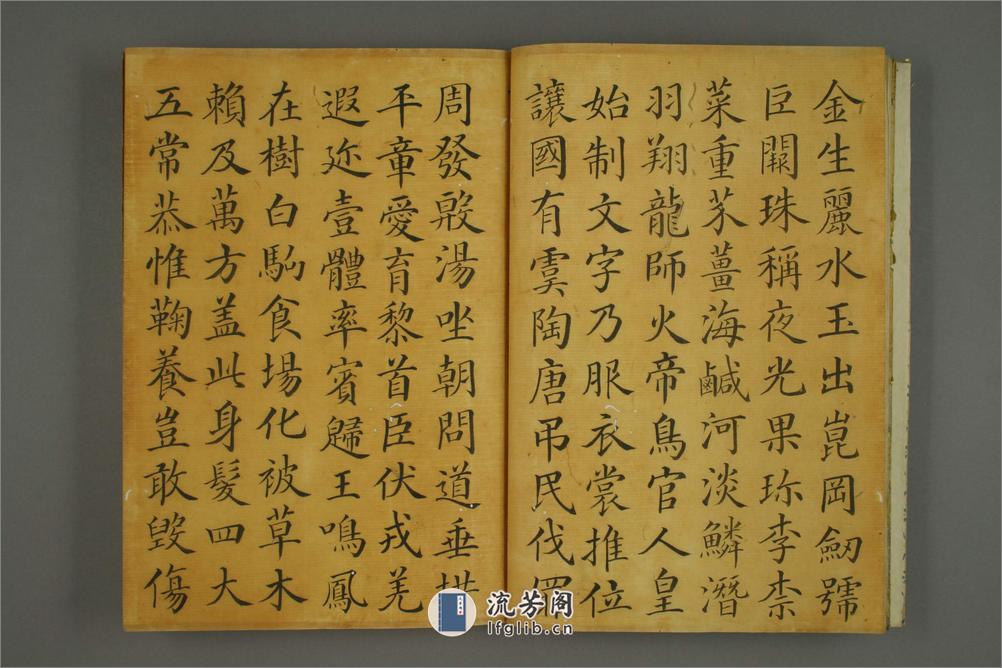 金生麗水玉出崑岡劒號
巨闕珠稱夜光果珎李柰
菜重芥薑海鹹河淡鱗潛
羽翔龍師火帝鳥官人皇
始制文字乃服衣裳推位
讓國有虞陶唐弔民伐罪
周發殷湯坐朝問道垂拱
平章愛育黎首臣伏戎羌
遐迩壹體率賓歸王鳴鳳
在樹白駒食場化被草木
賴及萬方盖此身髮四大
五常恭惟鞠養豈敢毀傷
流芳阁
lfglib.cn